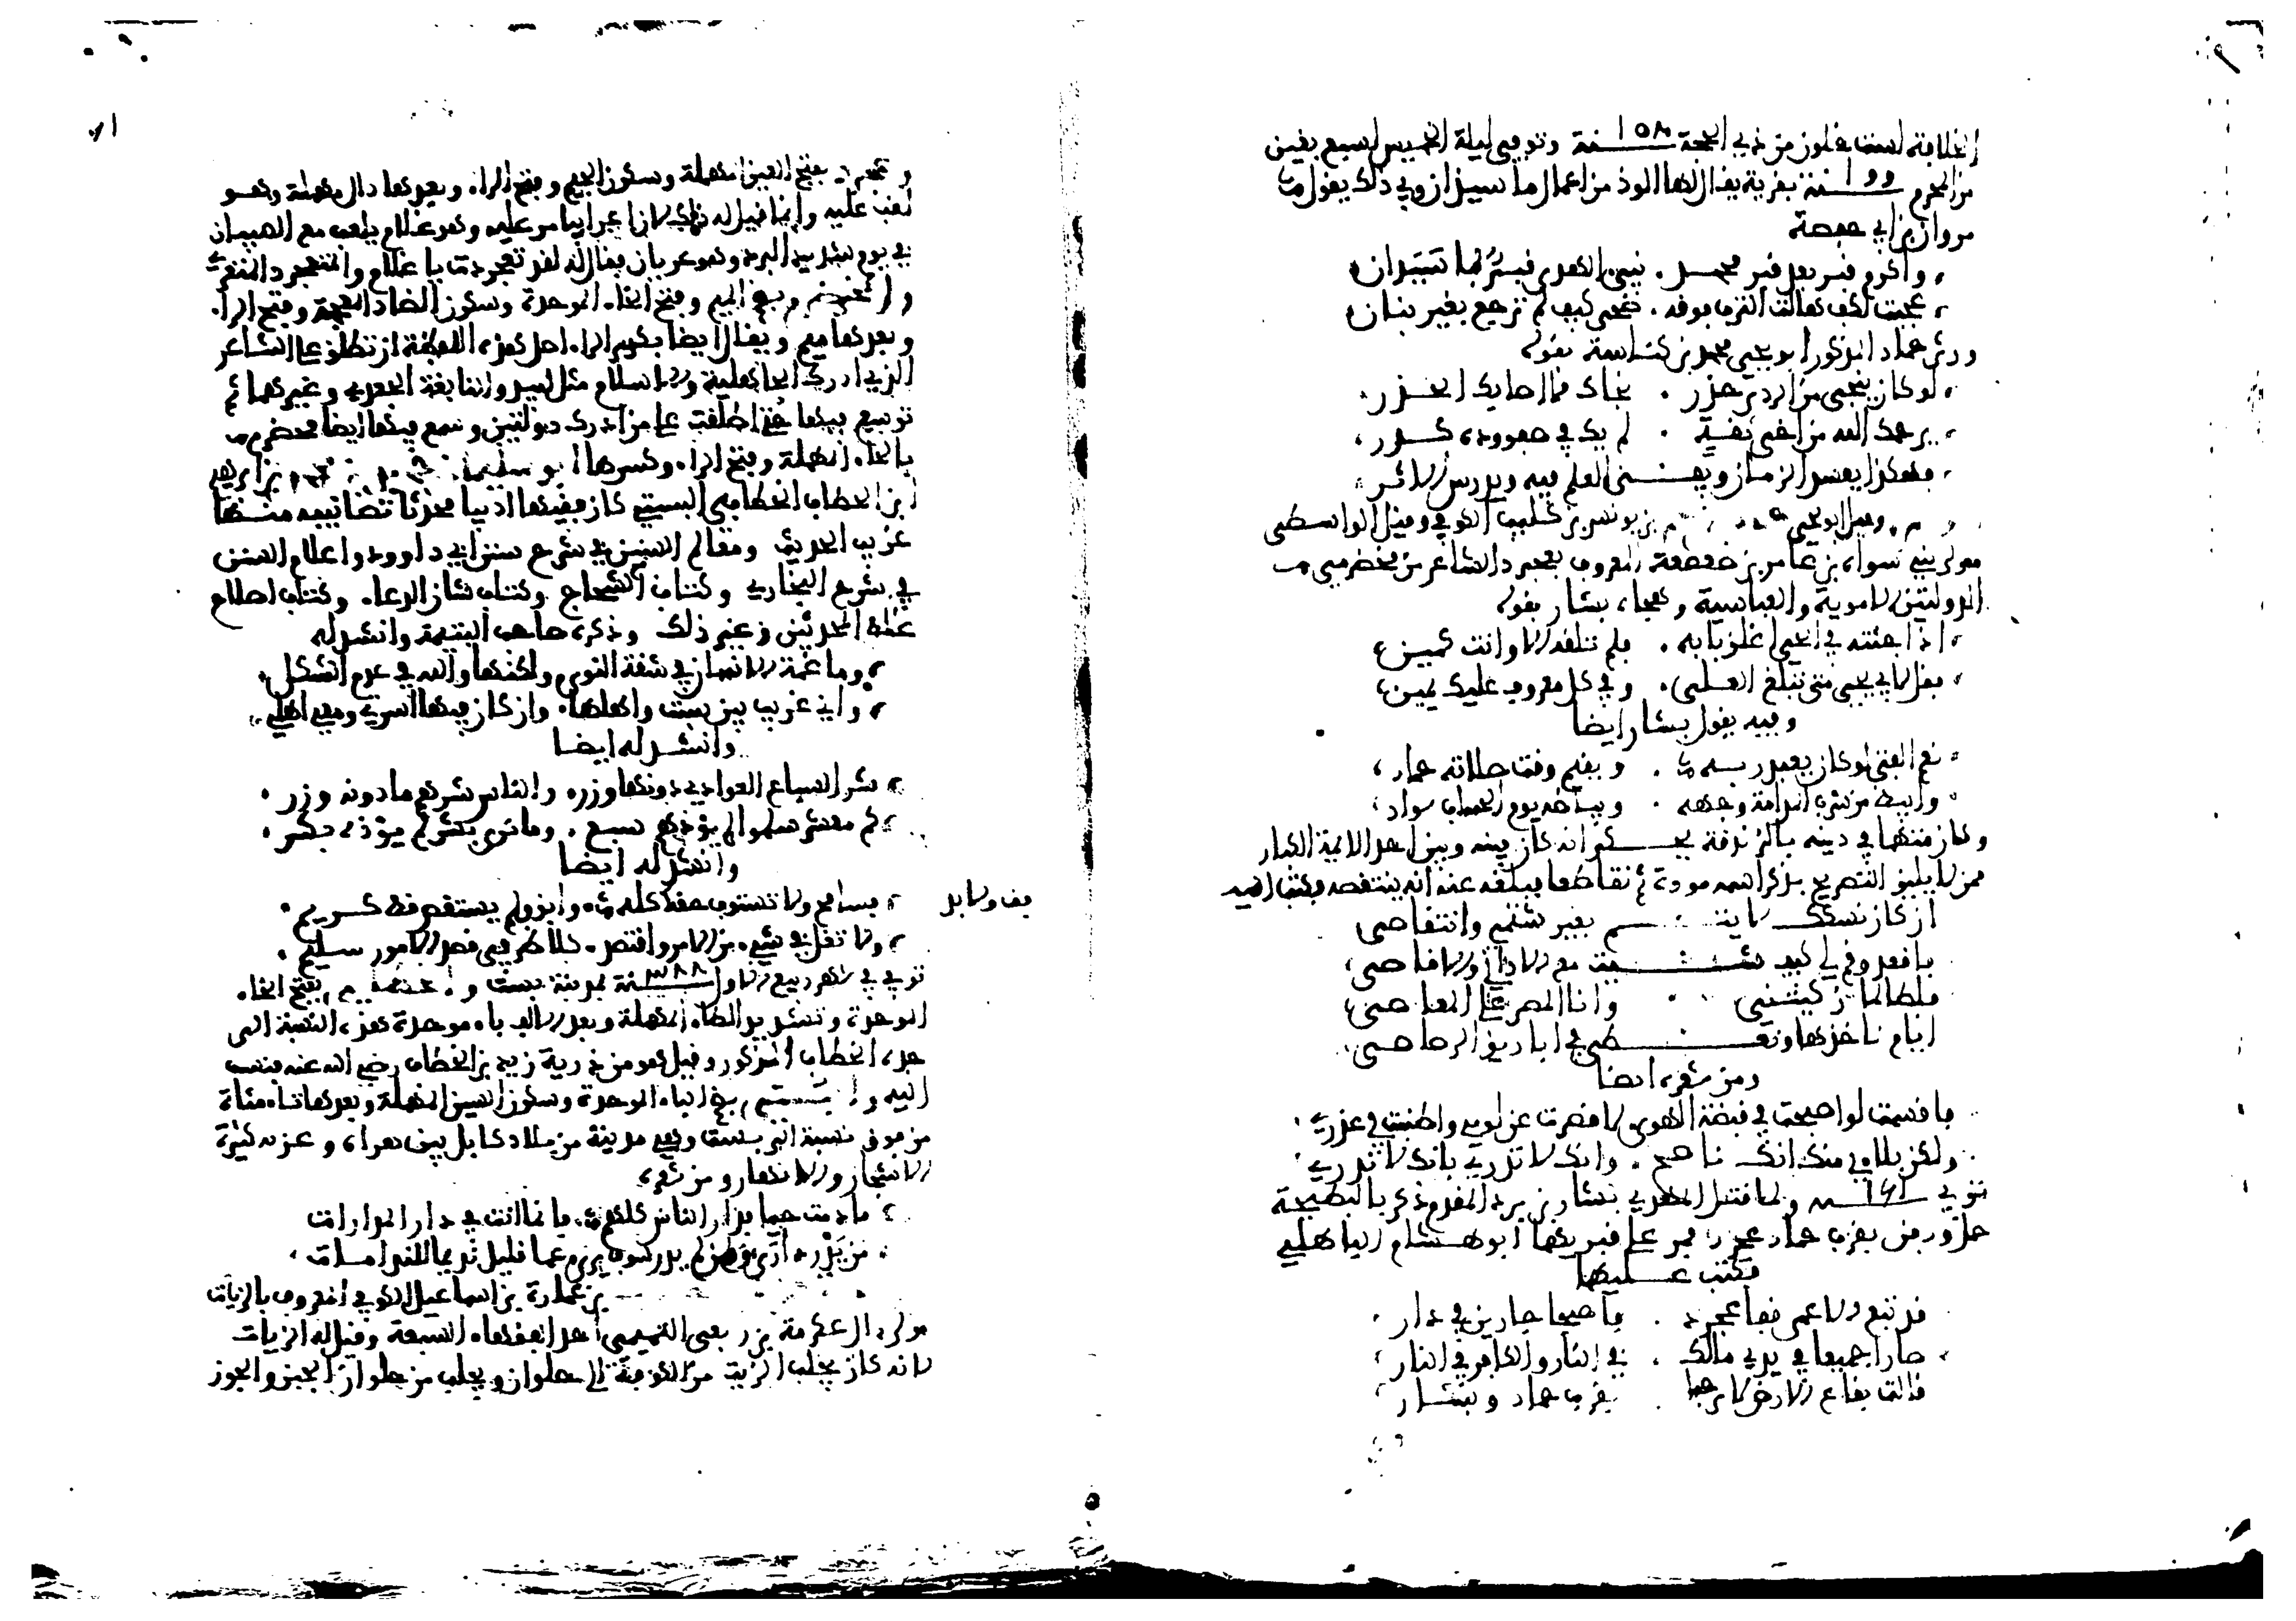 الخلافة لست خلون من ذي الحجة سنة ١٥٨ وتوفي ليلة الخميس لسبع بقين
من المحرم سنة بقرية يقال لها الوذ من اعمال ماسبذان وفي ذلك يقول
مروان بن ابي حفصة
واكرم قبر بعد قبر محمد نبي الهدى قبر بماسبذان
عجبت لكف هالت الترب فوقه ضحى كيف لم ترجع بغير بنان
ورثى حماد المذكور ابو يحيى محمد بن كناسة بقوله
لو كان ينجي من الردى حذر نجاك مما اصابك الحذر
يرحمك الله من اخي ثقة لم يك في صفو وده كدر
فهكذا يفسد الزمان ويفنى العلم فيه ويدرس الاثر
وقيل ابو يحيى بن يونس بن كليب الكوفي وقيل الواسطي
مولى بني سواة بن عامر بن صعصعة المعروف بعجرد الشاعر من مخضرمي
الدولتين الاموية والعباسية وهجاه بشار بقوله
اذا جئته في الحي اغلق بابه فلم تلقه الا وانت كمين
فقل لابي يحيى متى تبلغ العلى وفي كل معروف عليك يمين
وفيه يقول بشار ايضا
نعم الفتى لو كان يعبد ربه ويقيم وقت صلاته حماد
وابيض من شرب المدامة وجهه وبياضه يوم الحساب سواد
وكان متهما في دينه بالزندقة يحكى انه كان بينه وبين احد الايمة الكبار
ممن لا يليق التصريح بذكر اسمه مودة ثم تقاطعا فبلغه عنه انه ينتقصه فكتب اليه
ان كان نسكك لا يتم بغير شتمي وانتقاصي
فاقعد وقم لي كيف شئت مع الاداني والاقاصي
فلطالما زكيتني وانا المصر على المعاصي
ايام ناخذها ونعطي في اباريق الرصاص
ومن شعره ايضا
فاقسمت لو اصبحت في قبضة الهوى لاقصرت عن لومي واطنبت في عذري
ولكن بلاءي منك انك ناصح وانك لا تدري بانك لا تدري
توفي سنة ١٦١ ولما قتل المهدي بشار بن برد المقدم ذكره بالبطيحة
حمل ودفن بقرب حماد عجرد فمر على قبريهما ابو هشام الباهلي
فكتب عليهما
قد تبع الاعمى قفا عجرد فاصبحا جارين في دار
صارا جميعا في يدي مالك في النار والكافر في النار
قالت بقاع الارض لا مرحبا بقرب حماد وبشار
وعجرد بفتح العين المهملة وسكون الجيم وفتح الراء وبعدها دال مهملة وهو
لقب عليه وانما قيل له ذلك لان اعرابيا مر عليه وهو غلام يلعب مع الصبيان
في يوم شديد البرد وهو عريان فقال له لقد تعجردت يا غلام والمتعجرد المتعري
والمخضرم بضم الميم وفتح الخاء الموحدة وسكون الضاد المعجمة وفتح الراء
وبعدها ميم ويقال ايضا بكسر الراء اصل هذه اللفظة ان تطلق على الشاعر
الذي ادرك الجاهلية والاسلام مثل لبيد والنابغة الجعدي وغيرهما ثم
توسع فيها حتى اطلقت على من ادرك دولتين وسمع فيها ايضا محضرم
بالحاء المهملة وفتح الراء وكسرها ابو سليمان بن ابراهيم
ابن الخطاب الخطابي البستي كان فقيها اديبا محدثا تصانيفه منها
غريب الحديث ومعالم السنن في شرح سنن ابي داوود واعلام السنن
في شرح البخاري وكتاب الشحاج وكتاب شان الدعاء وكتاب اصلاح
غلط المحدثين وغير ذلك وذكره صاحب اليتيمة وانشد له
وما غمة الانسان في شقة النوى ولكنها والله في عدم الشكل
واني غريب بين بست واهلها وان كان فيها اسرتي وبها اهلي
وانشد له ايضا
شر السباع العوادي دونها وزر والناس شرهم ما دونه وزر
كم معشر سلموا لم يؤذهم سبع وما ترى بشرا لم يؤذه بشر
وانشد له ايضا
فسامح ولا تستوف حقك كله وابق فلم يستقص قط كريم
ولا تغل في شيء من الامر واقتصد كلا طرفي قصد الامور سليم
توفي في شهر ربيع الاول سنة ٣٨٨ بمدينة بست والخطابي بفتح الخاء
الموحدة وتشديد الطاء المهملة وبعد الالف باء موحدة هذه النسبة الى
جده الخطاب المذكور وقيل هو من ذرية زيد بن الخطاب رضي الله عنه فنسب
اليه والبستي بضم الباء الموحدة وسكون السين المهملة وبعدها تاء مثناة
من فوق نسبة الى بست وهي مدينة من بلاد كابل بين هراة وغزنة كثيرة
الاشجار والانهار ومن شعره
ما دمت حيا فدار الناس كلهم فانما انت في دار المدارات
من يدر دارى ومن لم يدر سوف يرى عما قليل نديما للندامات
بن عمارة بن اسماعيل الكوفي المعروف بالزيات
مولى ال عكرمة بن ربعي التميمي احد الفقهاء السبعة وقيل له الزيات
لانه كان يجلب الزيت من الكوفة الى حلوان ويجلب من حلوان الجبن والجوز